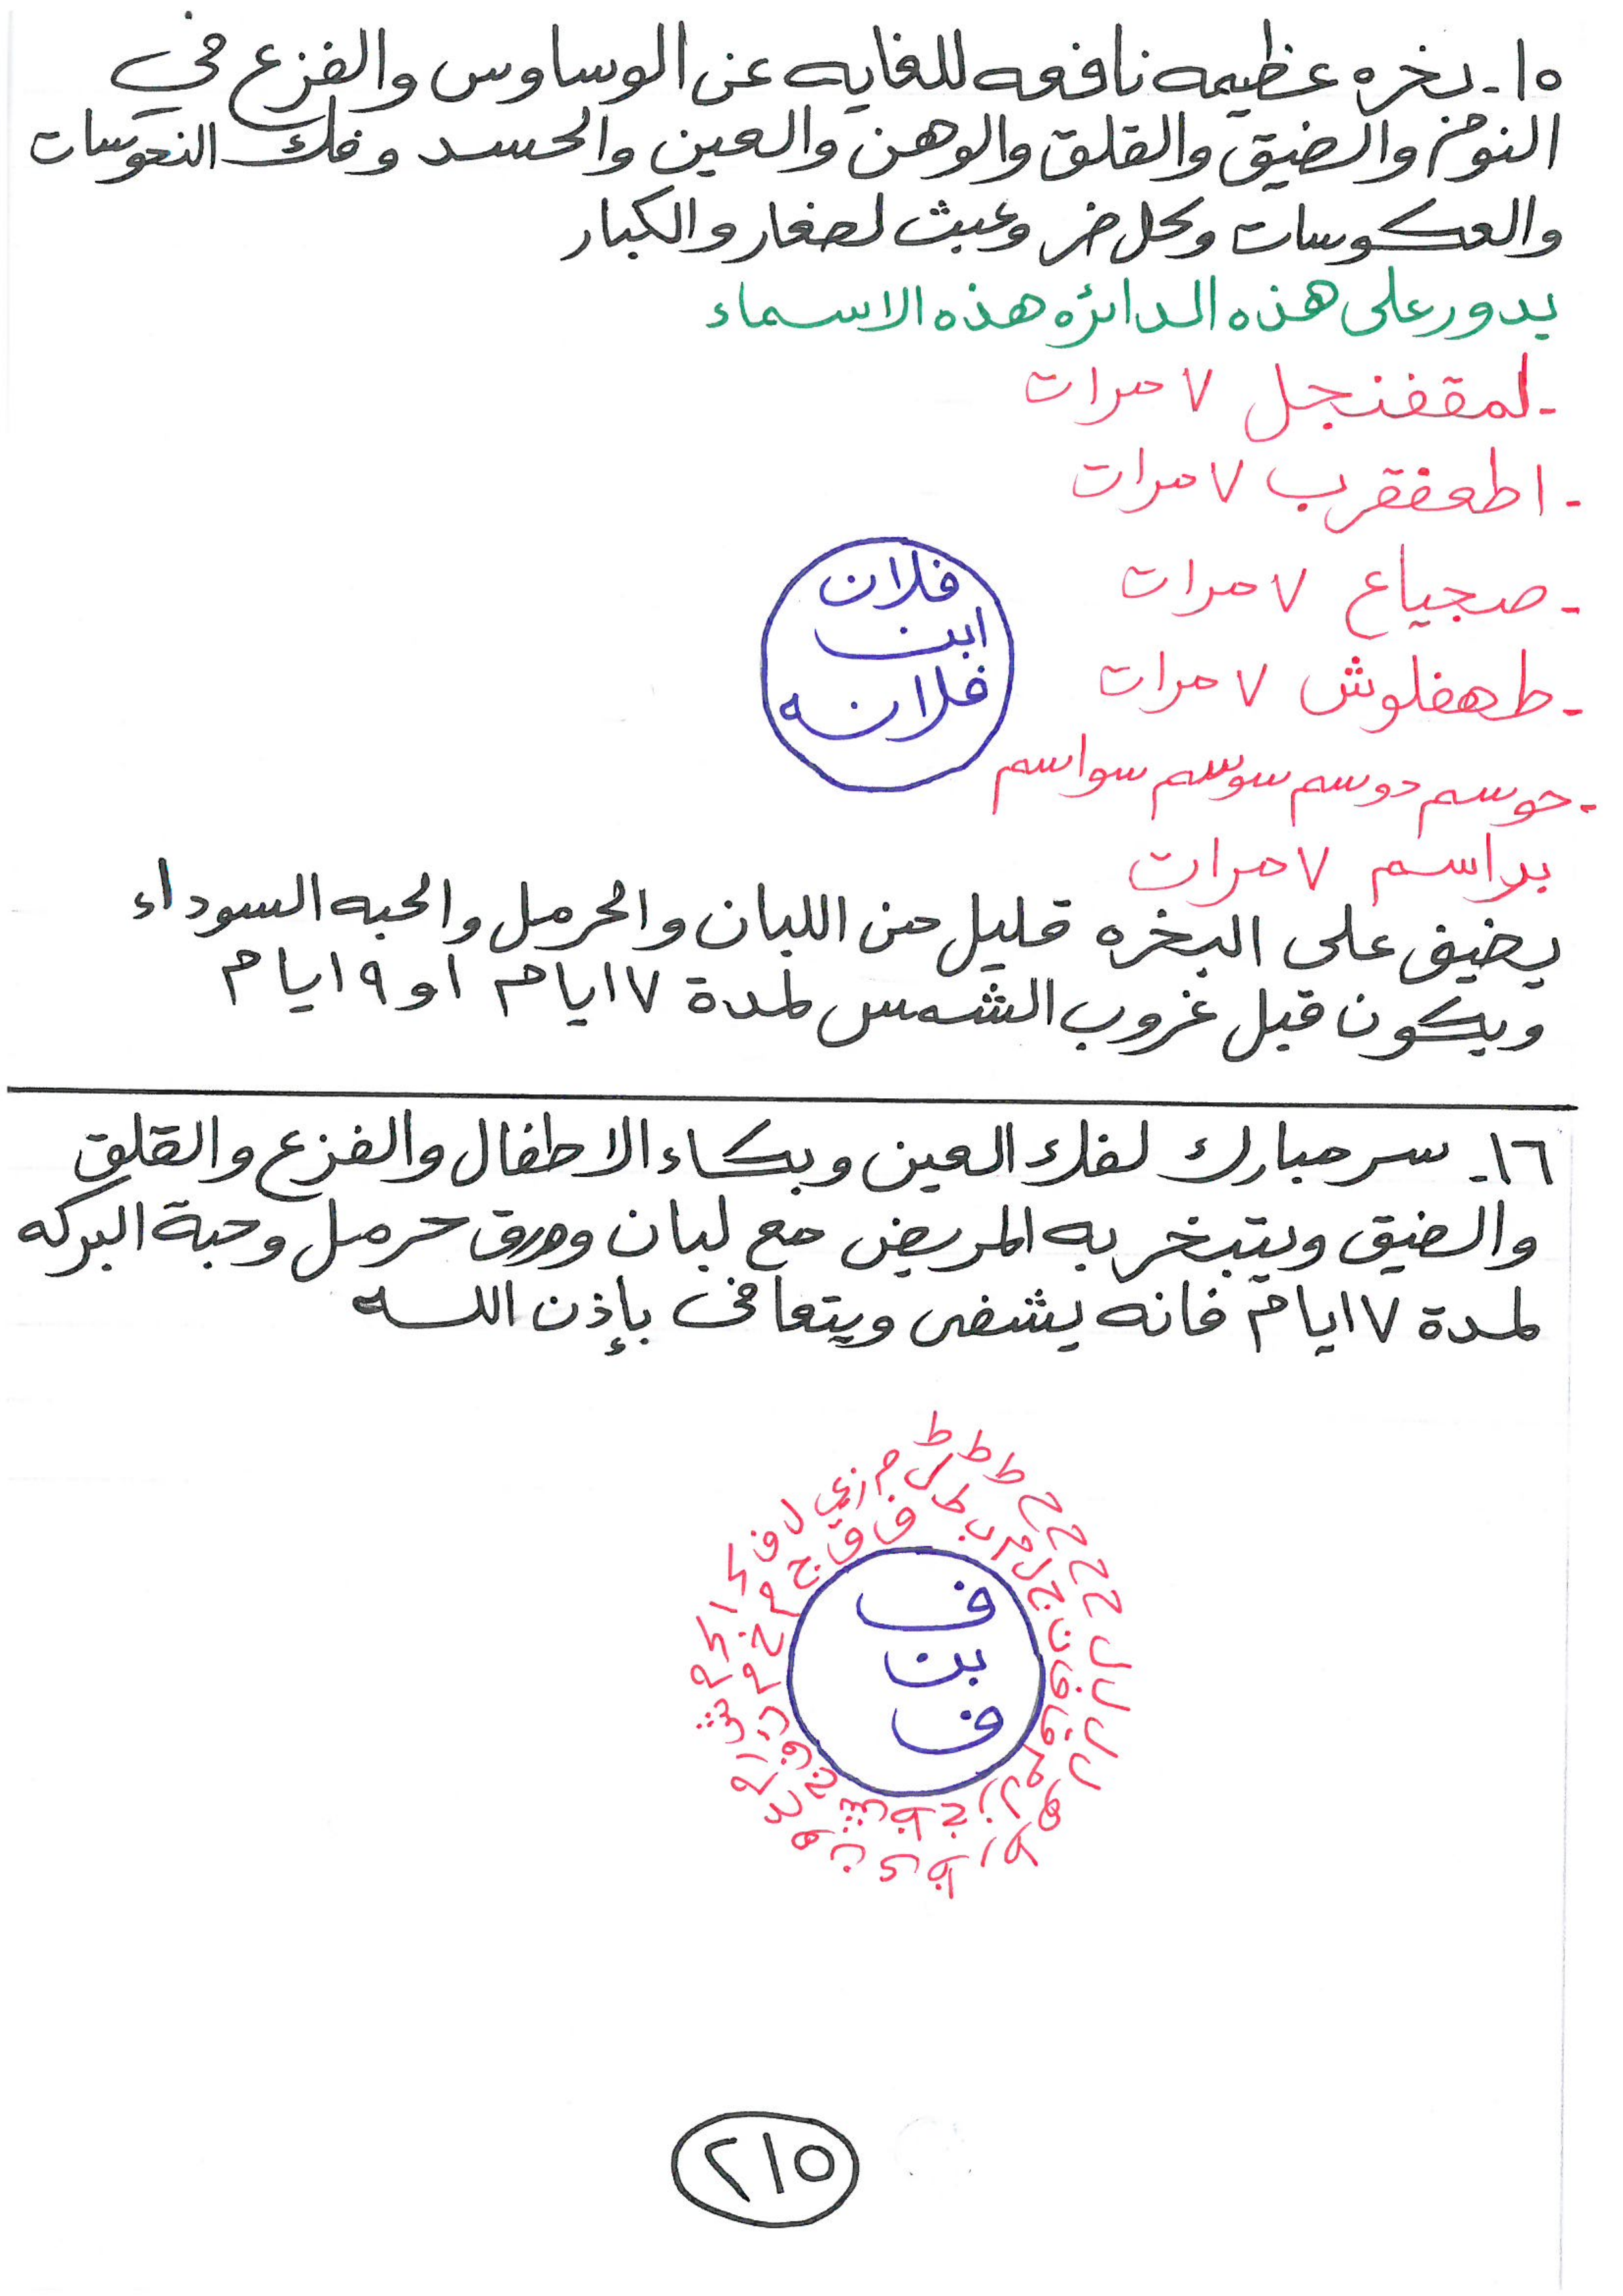 ١٥- بخره عظيمه نافعه للغايه عن الوساوس والفزع في
النوم والضيق والقلق والوهن والعين والحسد وفك النحوسات
والعكوسات وكل ضر وعبث لصغار والكبار
يدور على هذه الدائره هذه الاسماء
- لمقفنجل ٧ مرات
- اطعفقرب ٧ مرات
- صجياع ٧ مرات
- طهفلوش ٧ مرات
- حوسم دوسم سوسم سواسم
براسم ٧ مرات
فلان
ابن
فلانه
يضيف على البخره قليل من اللبان والحرمل والحبه السوداء
ويكون قبل غروب الشمس لمدة ٧ ايام او ٩ ايام
١٦- سر مبارك لفك العين وبكاء الاطفال والفزع والقلق
والضيق ويتبخر به المريض مع لبان وورق حرمل وحبة البركه
لمدة ٧ ايام فانه يشفى ويتعافى بإذن الله
ف
بن
ف
٢١٥